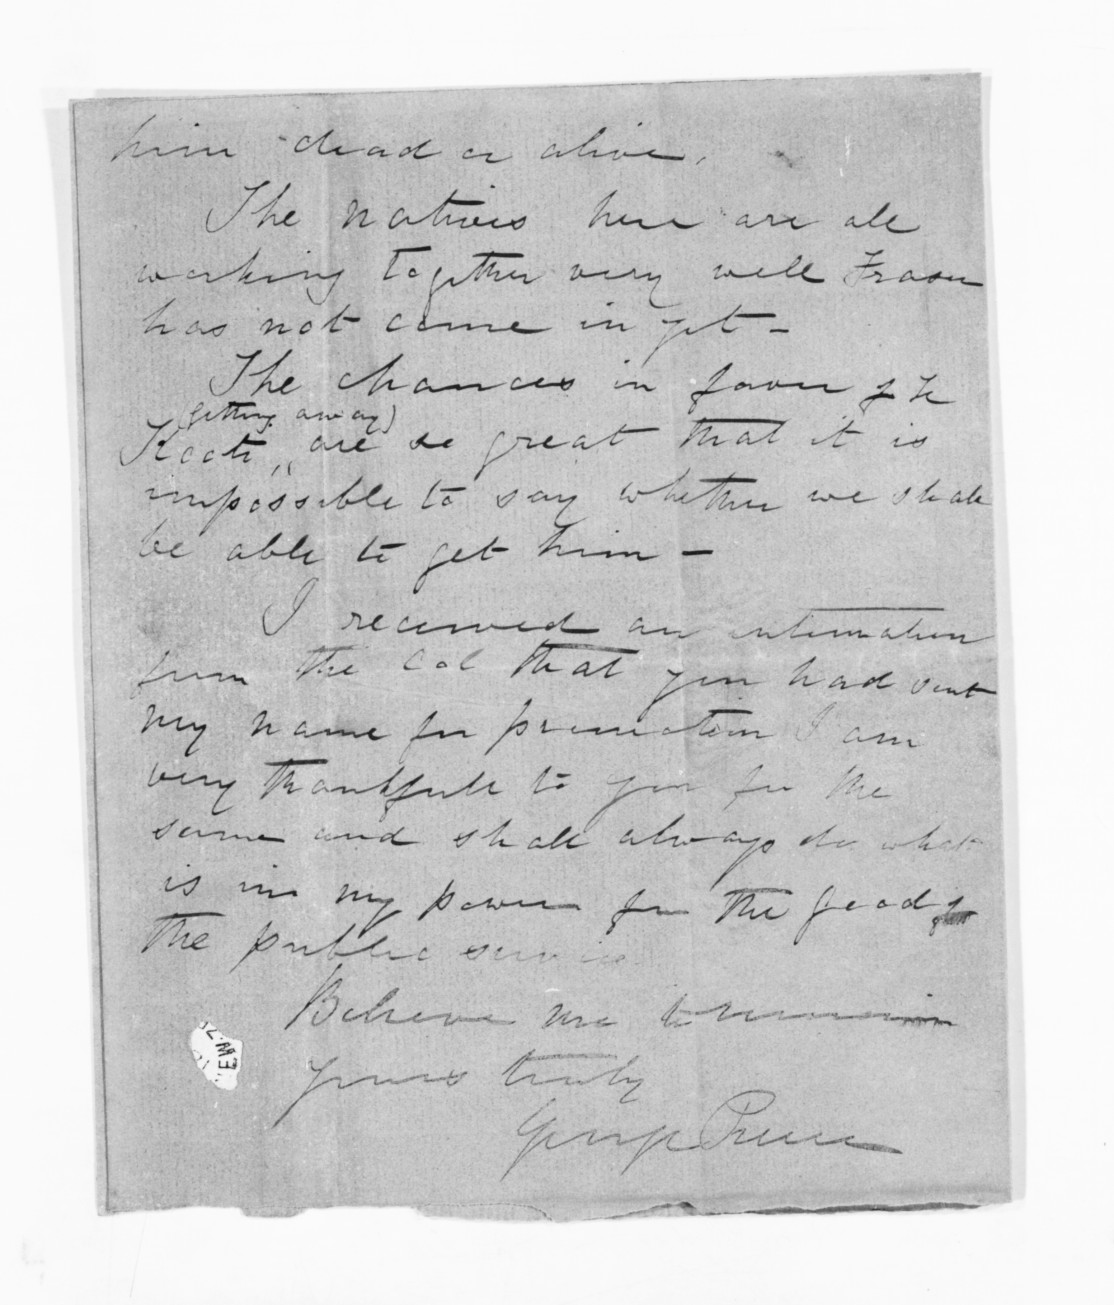 him dead or alive.
The natives here are all
working together very well Fraser
has not come in yet –
The chances in favor of Te
(getting away)
Kooti, are so great that it is
impossible to say whether we shall
be able to get him –
I received an intimation
from the Col that you had sent
my name for promotion I am
very thankfull to you for the
same and shall always do what
is in my power for the good of
the public service
Believe me to remain
yours truly
George Preece